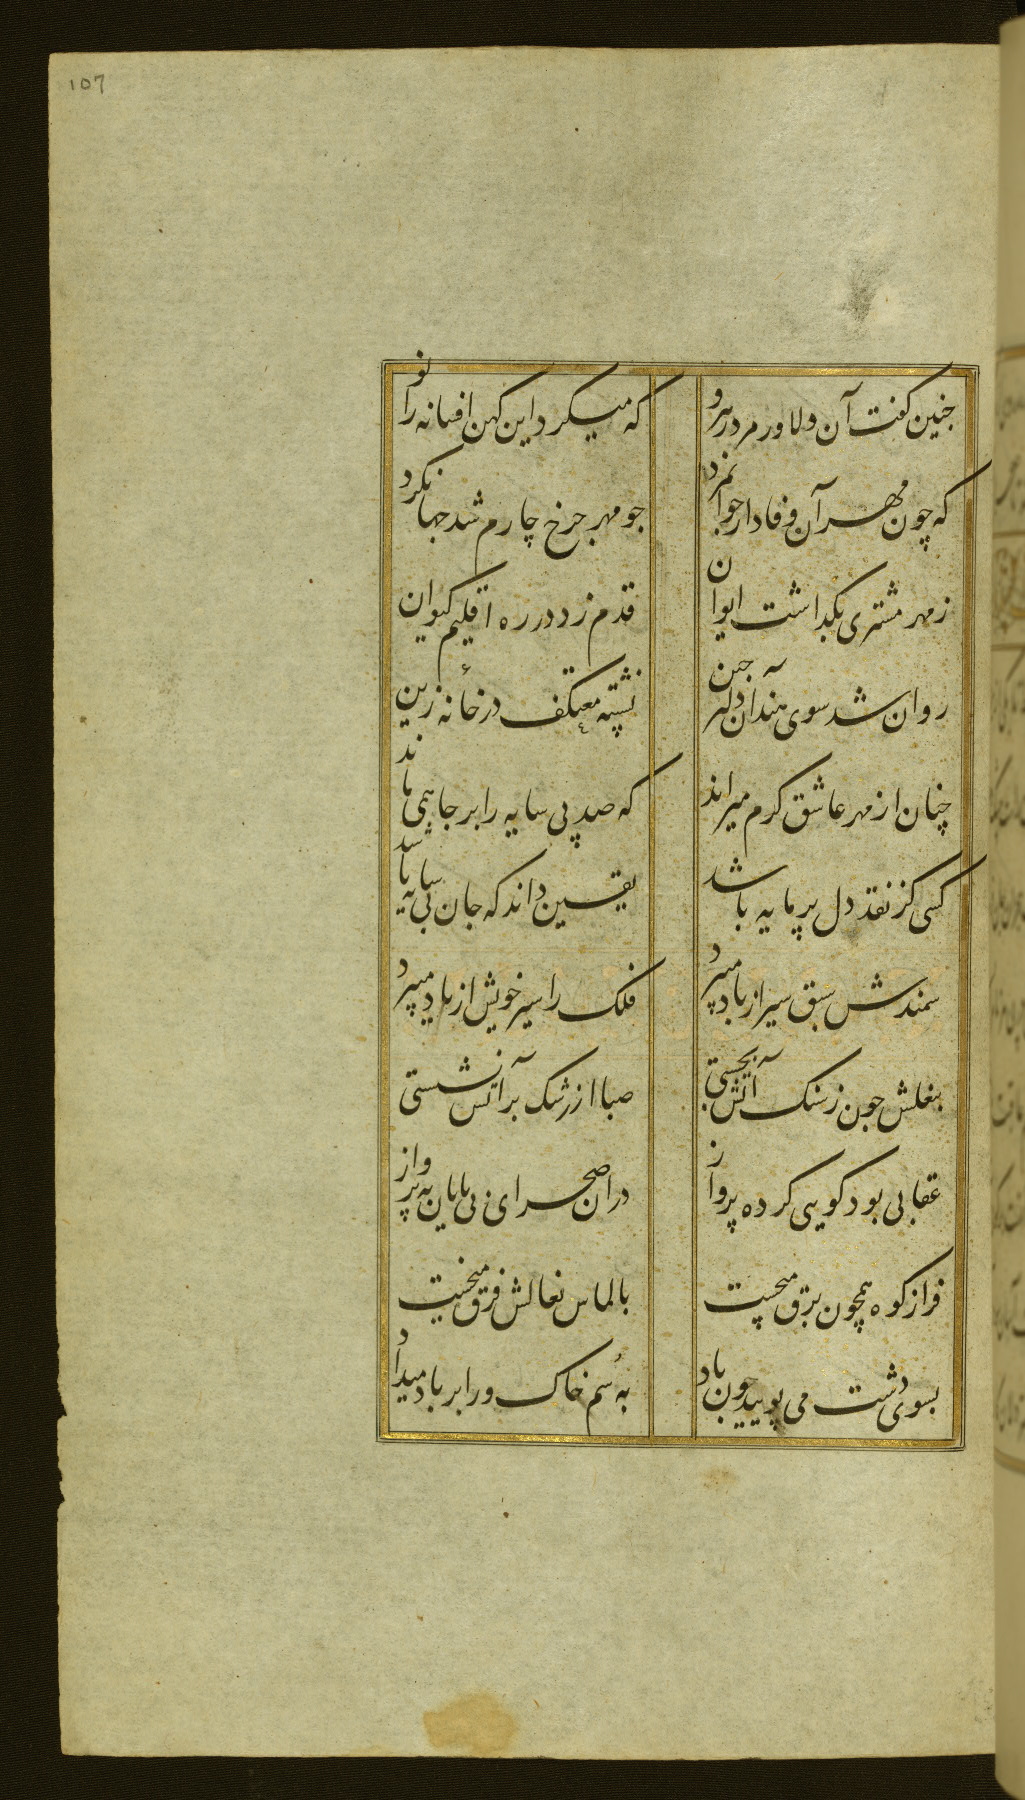 107
جنین کفت آن دلاور مرد رهرو
که میکرد این کهن افسانه را نو
که چون مهر آن وفادار جوانمرد
جو مهر جرخ چارم شد جهانکرد
ز مهر مشتری بکذاشت ایوان
قدم زد در ره اقلیم کیوان
روان شد سوی هند آن
نشسته معتکف در خانهٔ زین
چنان از مهر عاشق کرم میراند
که صد پی سایه را بر جا همی ماند
کسی کز نقد دل پرمایه باشد
یقین داند که جان بی سایه باشد
سمندش سبق سیر از باد میبرد
فلک را سیر خویش از یاد میبرد
بنعلش جون ز سنک آتش بجستی
صبا از رشک بر آتش نشستی
عقابی بود کویی کرده پرواز
در آن صحرای بی پایان به پرواز
فراز کوه همچون برق میجست
بالماس نعالش فرق میخست
بسوی دشت می پویید جون باد
به سم خاک ورا بر باد میداد